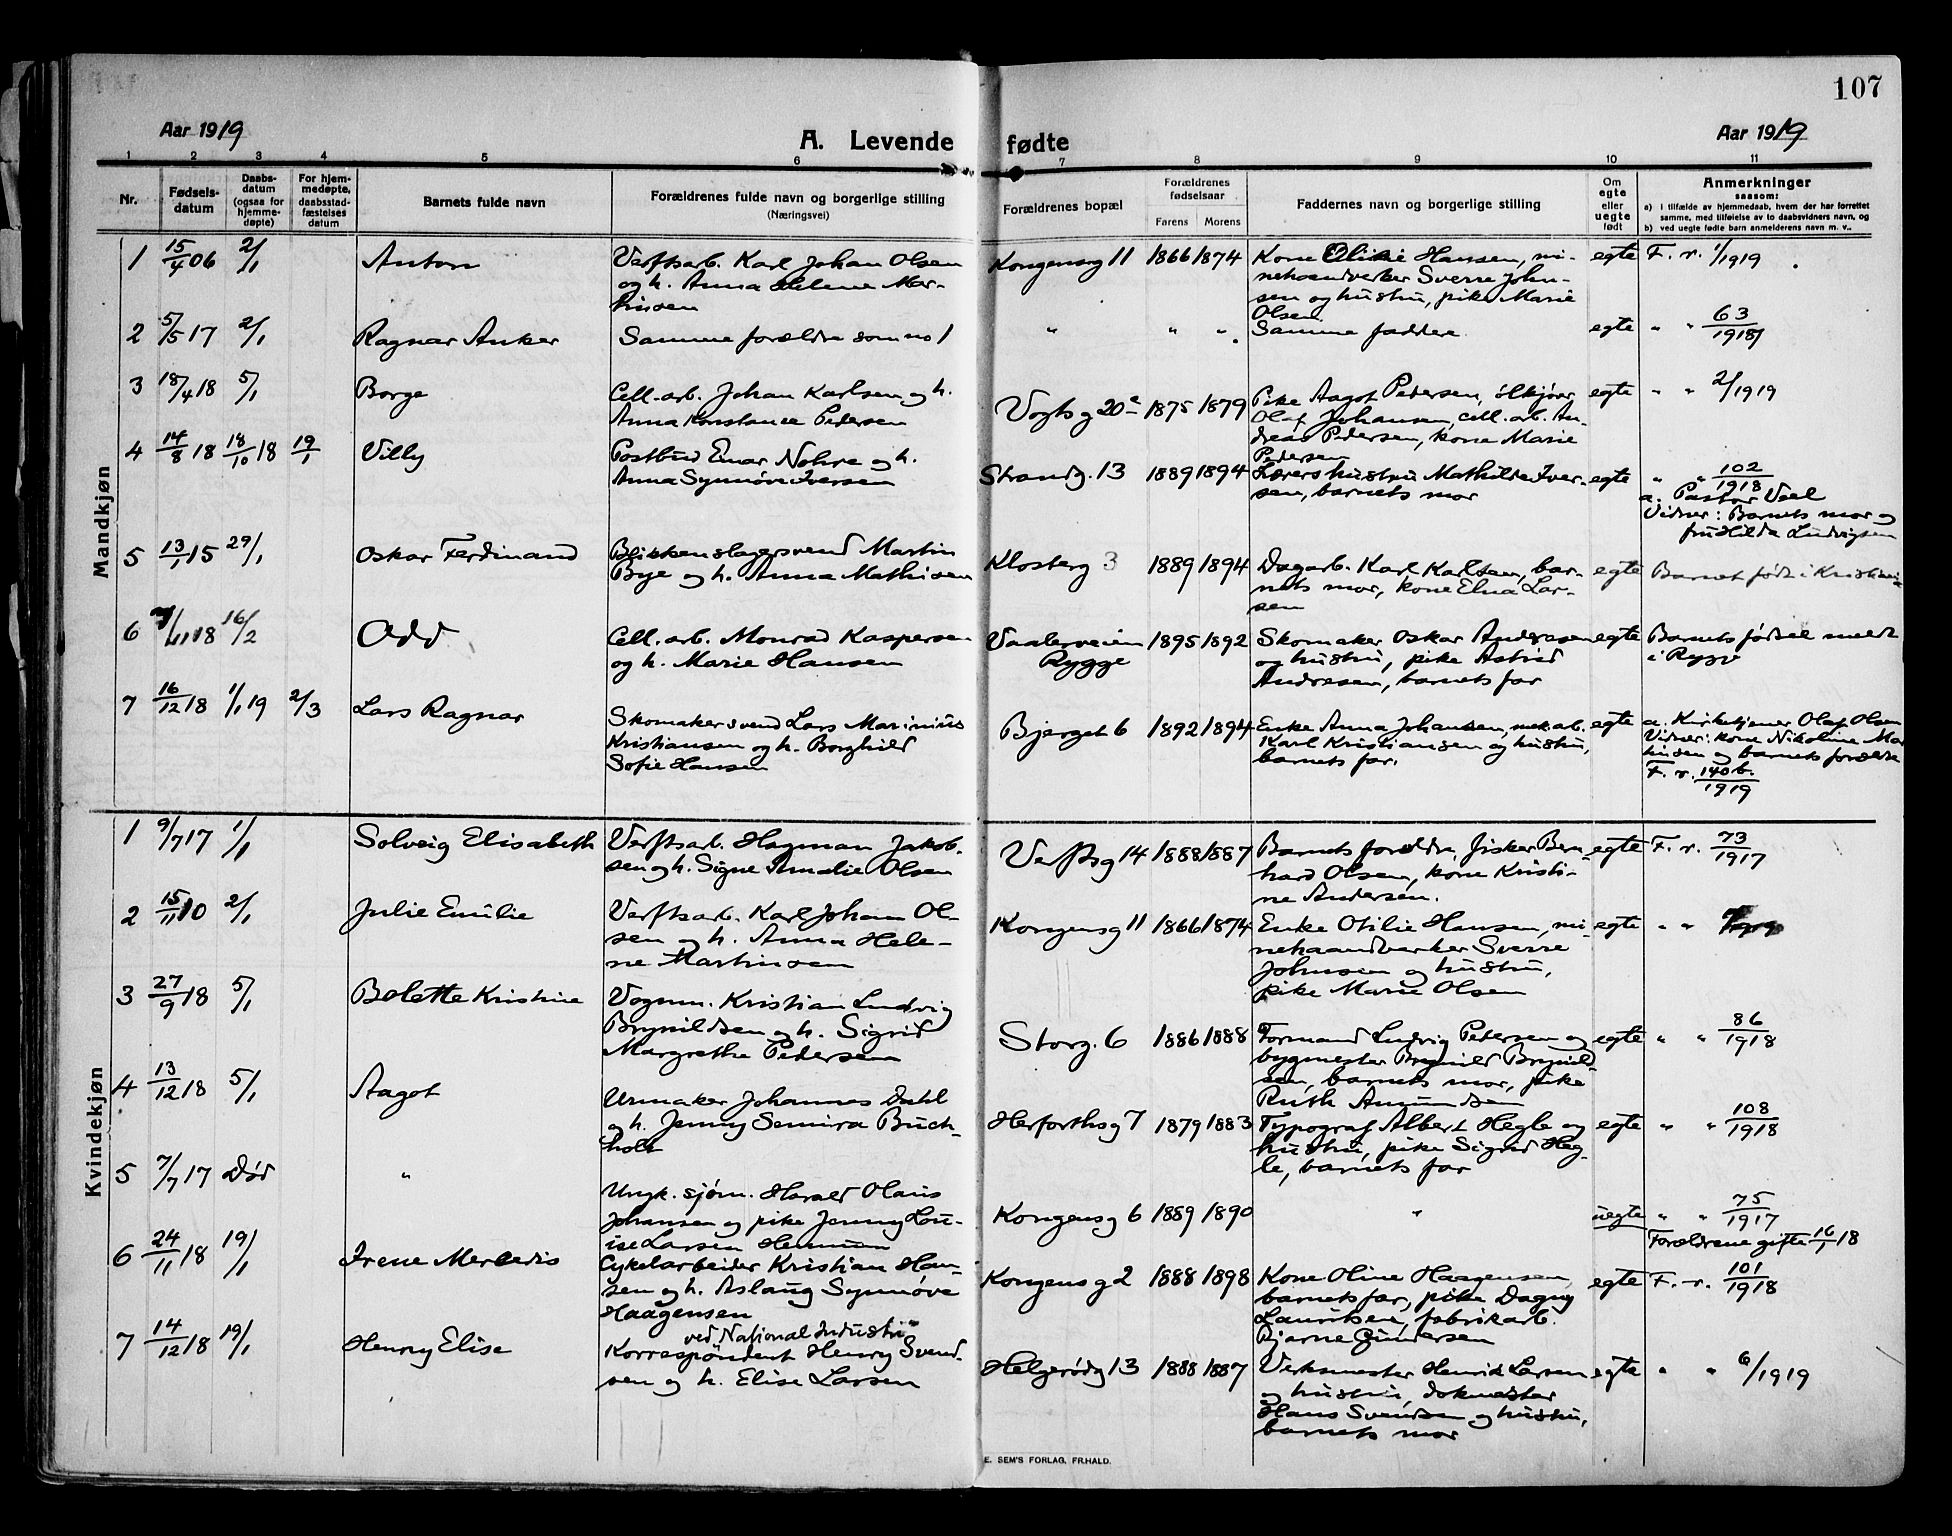 107
Aar 1919
A. Levende fødte
Aar 1919
1 2 3 4 5 6 7 8 9 10 11
Nr.
Fødsels-
datum
Daabs-
datum
(ogsaa for
hjemme-
døpte)
For hjem-
medøpte,
daabsstad-
fæstelses
datum
Barnets fulde navn
Forældrenes fulde navn og borgerlige stilling
(Næringsvei)
Forældrenes bopæl
Forældrenes
fødselsaar
Farens Morens
Faddernes navn og borgerlige stilling
Om
egte
eller
uegte
født
Anmerkninger
saasom:
a) i tilfælde av hjemmedaab, hvem der har forrettet
samme, med tilføielse av to daabsvidners navn, og
b) ved uegte fødte barn anmelderens navn m. v..
Mandkjøn
1 15/4 06 2/1 Anton
Verftsarb. Karl Johan Olsen
og h. Anna Helene Mar-
tinsen
Kongensg 11 1866 1874
Kone Otilie Hansen, mi-
nehaandverker Sverre John-
sen og hustru, pike Marie
Olsen
egte F. r. 1/1919
2 5/5 17 2/1 Ragnar Anker
Samme forældre som no 1
" " "
Samme faddere
egte " " 63/1918
3 18/4 18 5/1 Borge
Cell.-arb. Johan Karlsen og h.
Anna Konstance Pedersen
Vogtsg 20 1875 1879
Pike Aagot Pedersen, ølkjører
Olaf Johansen, cell. arb. An-
dreas Pedersen, kone Marie
Pedersen
egte " " 2/1919
4 14/8 18 18/10 18 19/1 Villy
Postbud Einar Nohre og h.
Anna Synnøve Iversen
Strandg. 13 1889 1894
Lærers hustru Mathilde Iver-
sen, barnets mor
egte " " 102/1918
a. Pastor Veel
Vidner: Barnets mor og
fru Hilda Ludvigsen
5 13/1 15 29/1 Oskar Ferdinand
Blikkenslagersvend Martin
Bye og h. Anna Mathisen
Klosterg 3 1889 1894
Dagarb. Karl Karlsen, bar-
nets mor, kone Elna Lar-
sen
egte Barnet født i Kristiania
6 /11 18 16/2 Odd
Cell. arb. Monrad Kaspersen
og h. Marie Hansen
Vaalerveien
Rygge
1895 1892
Skomaker Oskar Andresen
og hustru, pike Astrid
Andresen, barnets far
egte Barnets fødsel meldt
i Rygge
7 16/12 18 1/1 19 2/3 Lars Ragnar
Skomakersvend Lars Marinius
Kristiansen og h. Borghild
Sofie Hansen
Bjerget 6 1892 1894
Enke Anna Johansen, mek. arb.
Karl Kristiansen og hustru,
barnets far.
egte a. Kirketjener Olaf Olsen
Vidner: kone Nikoline Mar
tinsen og barnets forældre
F. r. 140 b./1919
Kvindekjøn
1 9/7 17 1/1 Solveig Elisabeth
Verftsarb. Hagman Jakob-
sen og h. Signe Amalie Olsen
Verftsg 14 1888 1887
Barnets forældre, fisker Bern-
hard Olsen, kone Kristi-
ne Andersen.
egte F. r. 73/1917
2 15/11 10 2/1 Julie Emilie
Verftsarb. Karl Johan Ol-
sen og h. Anna Hele-
ne Martinsen
Kongensg 11 1866 1874
Enke Otilie Hansen, mi-
nehaandverker Sverre
Johnsen og hustru,
pike Marie Olsen
egte " "
3 27/9 18 5/1 Bolette Kristine
Vognm. Kristian Ludvig
Brynildsen og h. Sigrid
Margrethe Pedersen
Storg. 6 1886 1888
Formand Ludvig Pedersen og
bygmester Brynild Brynild-
sen, barnets mor, pike
Ruth Amundsen
egte " " 86/1918
4 13/12 18 5/1 Aagot
Urmaker Johannes Dahl
og h. Jenny Semira Buch-
holt
Herforthsg 7 1879 1883
Typograf Albert Hegle og
hustru, pike Sigrid Heg-
le, barnets far
egte " " 108/1918
5 7/7 17 Død "
Ungk. sjøm. Harald Olaus
Johansen og pike Jenny Lou-
ise Larsen
Kongensg 6 1889 1890
"
uegte " " 75/1917
Forældrene gifte 16/1 18
6 24/11 18 19/1 Irene Mercedis
Cykelarbeider Kristian Han-
sen og h. Aslaug Synnøve
Haagensen
Kongensg 2 1888 1898
Kone Oline Haagensen,
barnets far, pike Dagny
Lauritsen, fabrikarb.
Bjarne Gundersen
egte F. r. 101/1918
7 14/12 18 19/1 Henny Elise
ved National Industri
Korrespondent Henry Svend-
sen og h. Elise Larsen
Helgerødg 13 1888 1887
Verksmester Henrik Larsen
og hustru, dokmester
Hans Svendsen og hustru,
barnets mor
egte " " 6/1919
E. SEM'S FORLAG, FR.HALD.